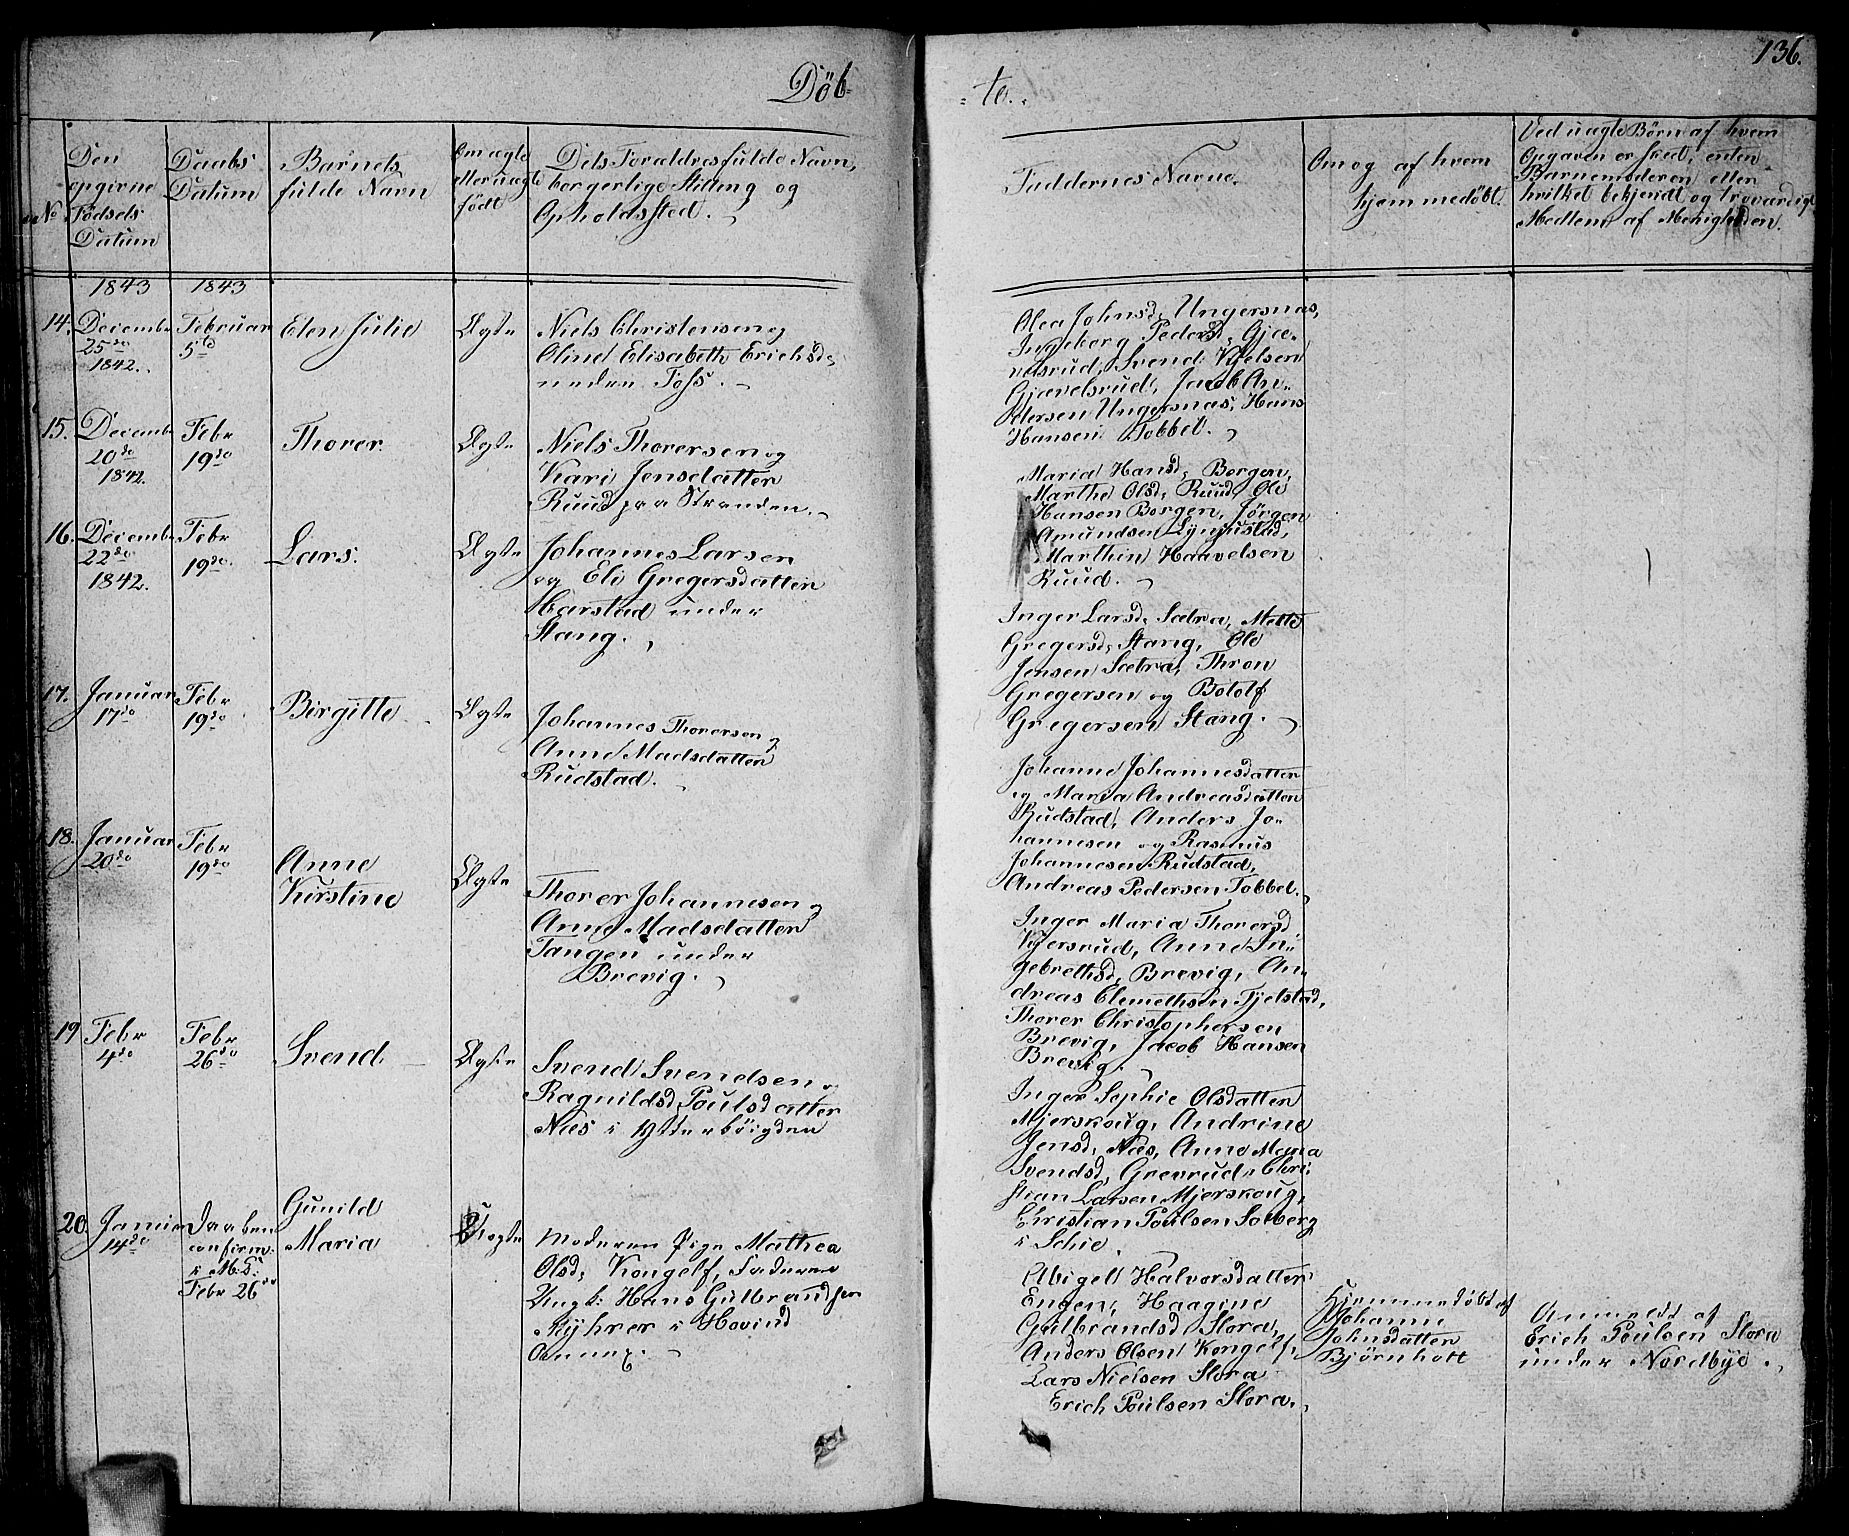 136.
Döb-
-te.-
No
Den
opgivne
Födsels
Datum
Daabs
Datum
Barnets
fulde Navn
Om ægte
eller uægte
födt
Dets Foraldres fulde Navn,
borgerlige Stilling og
Opholdssted.
Faddernes Navne.
Om og af hvem
hjemmedöbt.
Ved uægte Börn af hvem
Opgaven er sked, enten
Barnemoderen eller
hvilket bekjendt og troværdigt
Medlem af Menigheden.
1843
1843
14. Decembr
25de
1842.
Februar
5te
Elen Julie
Ægte
Niels Christensen og
Oline Elisabeth Erichsd,
neder Foss.
Olea Johnsd, Ungersnæs,
Ingeborg Pedersd, Gjæ-
velsrud, Svend Kjelsen
Gjævelsrud, Jacob An-
dersen Ungersnæs, Hans
Hansen Tobbel.
15. Decembr
20de
1842.
Febr
19de
Thorer.
Ægte
Niels Thorersen og
Kari Jensdatter
Ruud paa Stranden.
Maria Hansd, Borgen,
Marthe Olsd, Ruud, Ole
Hansen Borgen, Jörgen
Amundsen
Marthin Haavelsen
Ruud.
16. Decembr
22de
1842.
Febr
19de
Lars.
Ægte
Johannes Larsen
og Eli Gregersdatter
Harstad under
Stang.
Inger Larsd, Sætra, Mette
Gregersd, Stang, Ole
Jensen Sætra, Thron
Gregersen og Botolf
Gregersen Stang.
17. Januar
17de
Febr
19de
Birgitte
Ægte
Johannes Thorersen og
Anne Madsdatter
Rudstad.
Johanne Johannesdatter
og Maria Andreasdatter
Rudstad, Anders Jo-
hannesen og Rasmus
Johannesen Rudstad,
Andreas Pedersen Tobbel.
18. Januar
20de
Febr
19de
Anne
Kirstine
Ægte
Thorer Johannesen og
Anne Madsdatter
Tangen under
Brevig.
Inger Maria Thorersd
Kjersrud, Anne In-
gebrethsd, Brevig, An-
dreas Clemethsen Fjelstad,
Thorer Christophersen
Brevig, Jacob Hansen
Brevig.
19 Febr
4de
Febr
26de
Svend
Ægte
Svend Svendsen og
Ragnildsd Poulsdatter
Næs i Ytterböigden
Inger Sophie Olsdatter
Mjerskoug, Andrine
Jensd, Næs, Anne Maria
Svendsd, Grevrud, Chri-
stian Larsen Mjerskoug,
Christian Poulsen Solberg
i Schie.
20 Januar
14de
Daaben
confirm.
i
Febr 26de
Gunild
Maria
Uægte
Moderen Pige Mathea
Olsd, Kongelf, Faderen
Ungk: Hans Gulbrandsen
Nyhrer i Hovind
Annex.
Abigel Halvorsdatter
Engen, Haagine
Gulbrandsd Slora,
Anders Olsen Kongelf,
Lars Nielsen Slora
Erich Poulsen Slora.
Hjemmedöbt af
Johanne
Johnsdatter
Björnholt
Anmeldt af
Erich Poulsen Slora
under Nordbye.